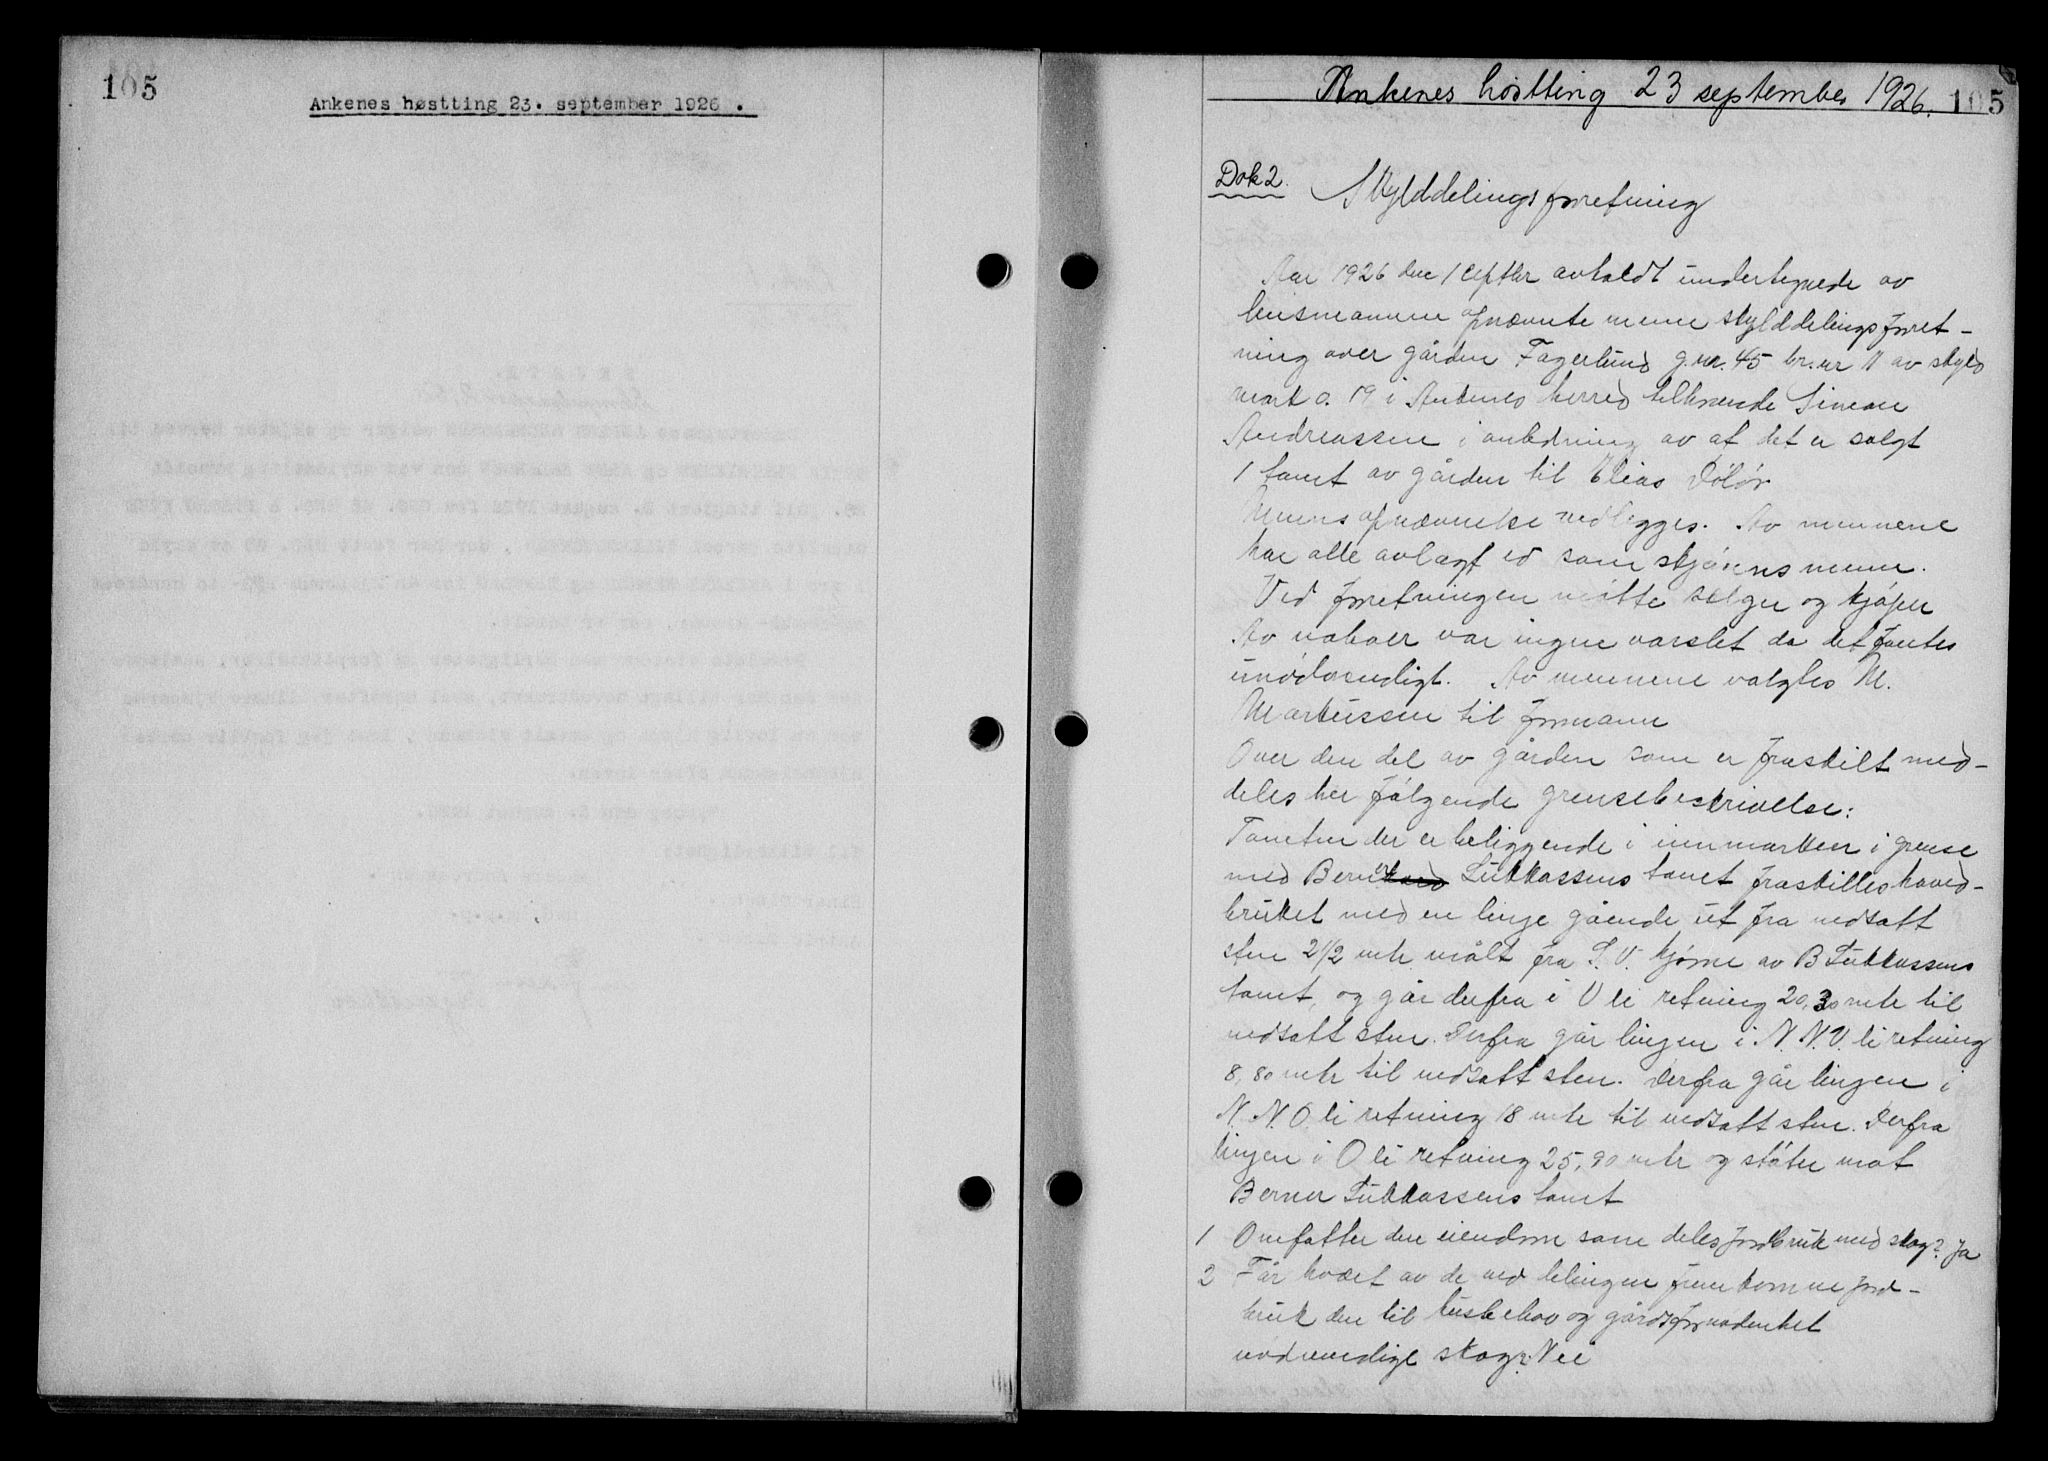 105
Ankenes høstting 23. september 1926 .
Ankenes høstting 23 september 1926. 105
Dok 2.
Skylddelingsforretning
Aar 1926 den 1 septbr avholdt undertegnede av
lensmannen opnævnte menn skylddelingsforret-
ning over gården Fagerlund g.nr. 45 br.nr 11 av skyld
mark 0.19 i Ankenes herred tilhørende Simon
Andreassen i anledning av at det er solgt
1 tomt av gården til Elias Dölör
Menns opnævnelse vedlegges. Av mennene
har alle avlagt ed som skjønsmenn.
Ved forretningen møtte selger og kjøper
Av naboer var ingen varslet da det fantes
unødvendigt. Av mennene valgtes M.
Markussen til formann
Over den del av gården som er fraskilt med-
deles her følgende grensebeskrivelse:
Tomten der er beliggende i innmarken i grense
med Berner Lukkassens tomt fraskilles hoved-
bruket med en linje gående ut fra nedsatt
sten 2 1/2 mtr målt fra S.V. hjørne av B Lukkassens
tomt, og går derfra i V li retning 20,30 mtr til
nedsatt sten. Derfra går linjen i N.N.V. li retning
8,80 mtr til nedsatt sten. Derfra går linjen i
N.N.O. li retning 18 mtr til nedsatt sten. Derfra
linjen i O li retning 25,90 mtr og støter mot
Berner Lukkassens tomt
1 Omfatter den eiendom som deles jordbruk med skog? Ja
2 Får hvert av de ved delingen fremkomne jord-
bruk den til husbehov og gårdsfornødenhet
nødvendige skog? Nei